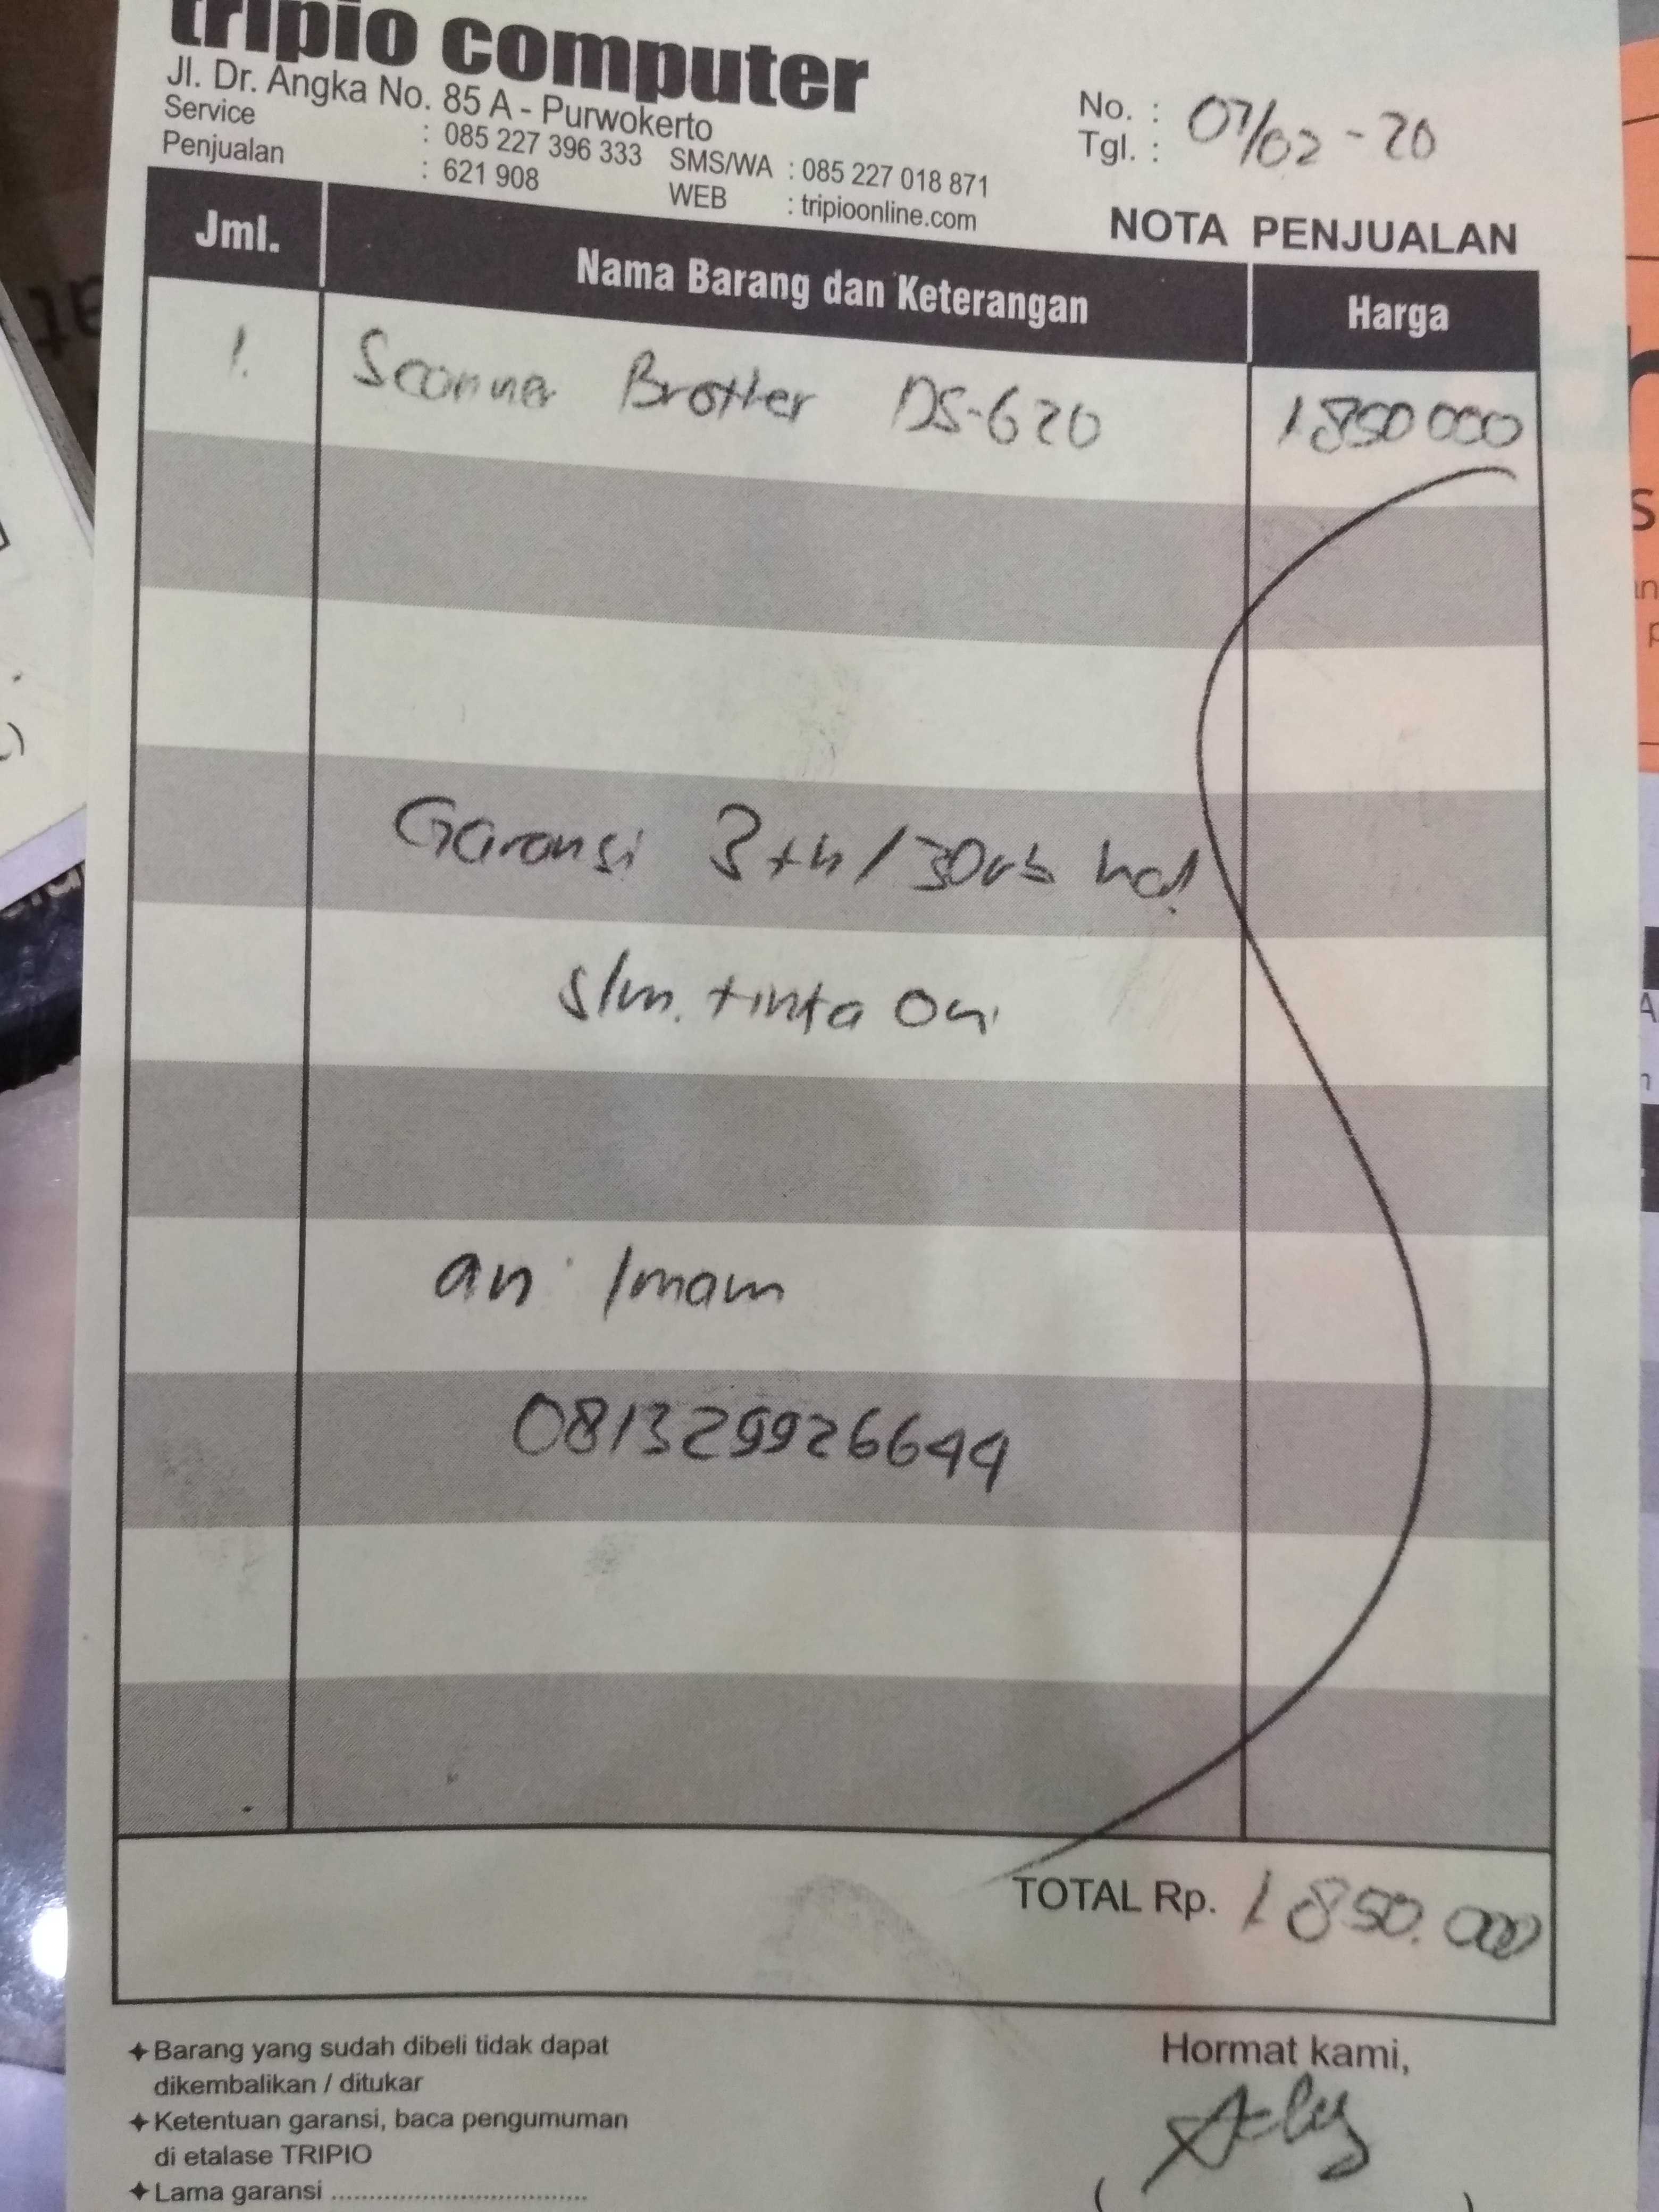 tripio computer
Jl. Dr. Angka No. 85 A - Purwokerto
Service : 085 227 396 333 SMS/WA : 085 227 018 871
Penjualan : 621 908 WEB : tripioonline.com
No. :
Tgl. : 07/02-20
NOTA PENJUALAN
Jml. Nama Barang dan Keterangan Harga
1. Scanner Brother DS-620 1850000
Garansi 3 th / 30rb hal
s/m. tinta Ori
an. Imam
081329926644
TOTAL Rp. 1 850.000
Barang yang sudah dibeli tidak dapat
dikembalikan / ditukar
Ketentuan garansi, baca pengumuman
di etalase TRIPIO
Lama garansi ......................................
Hormat kami,
( )